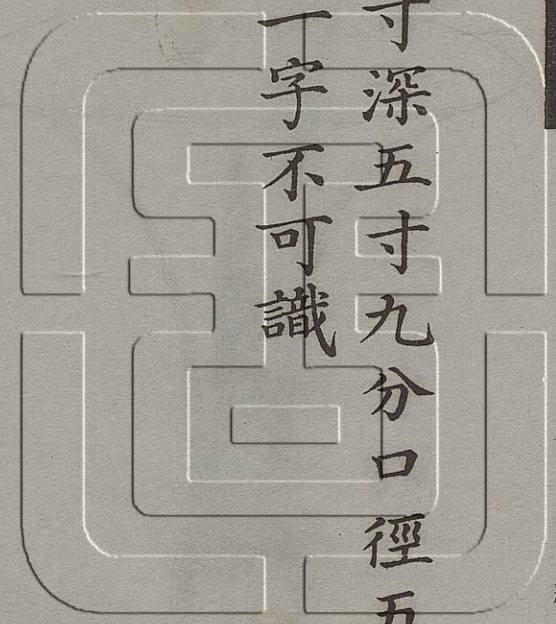 寸深五寸九分口徑五
一字不可識